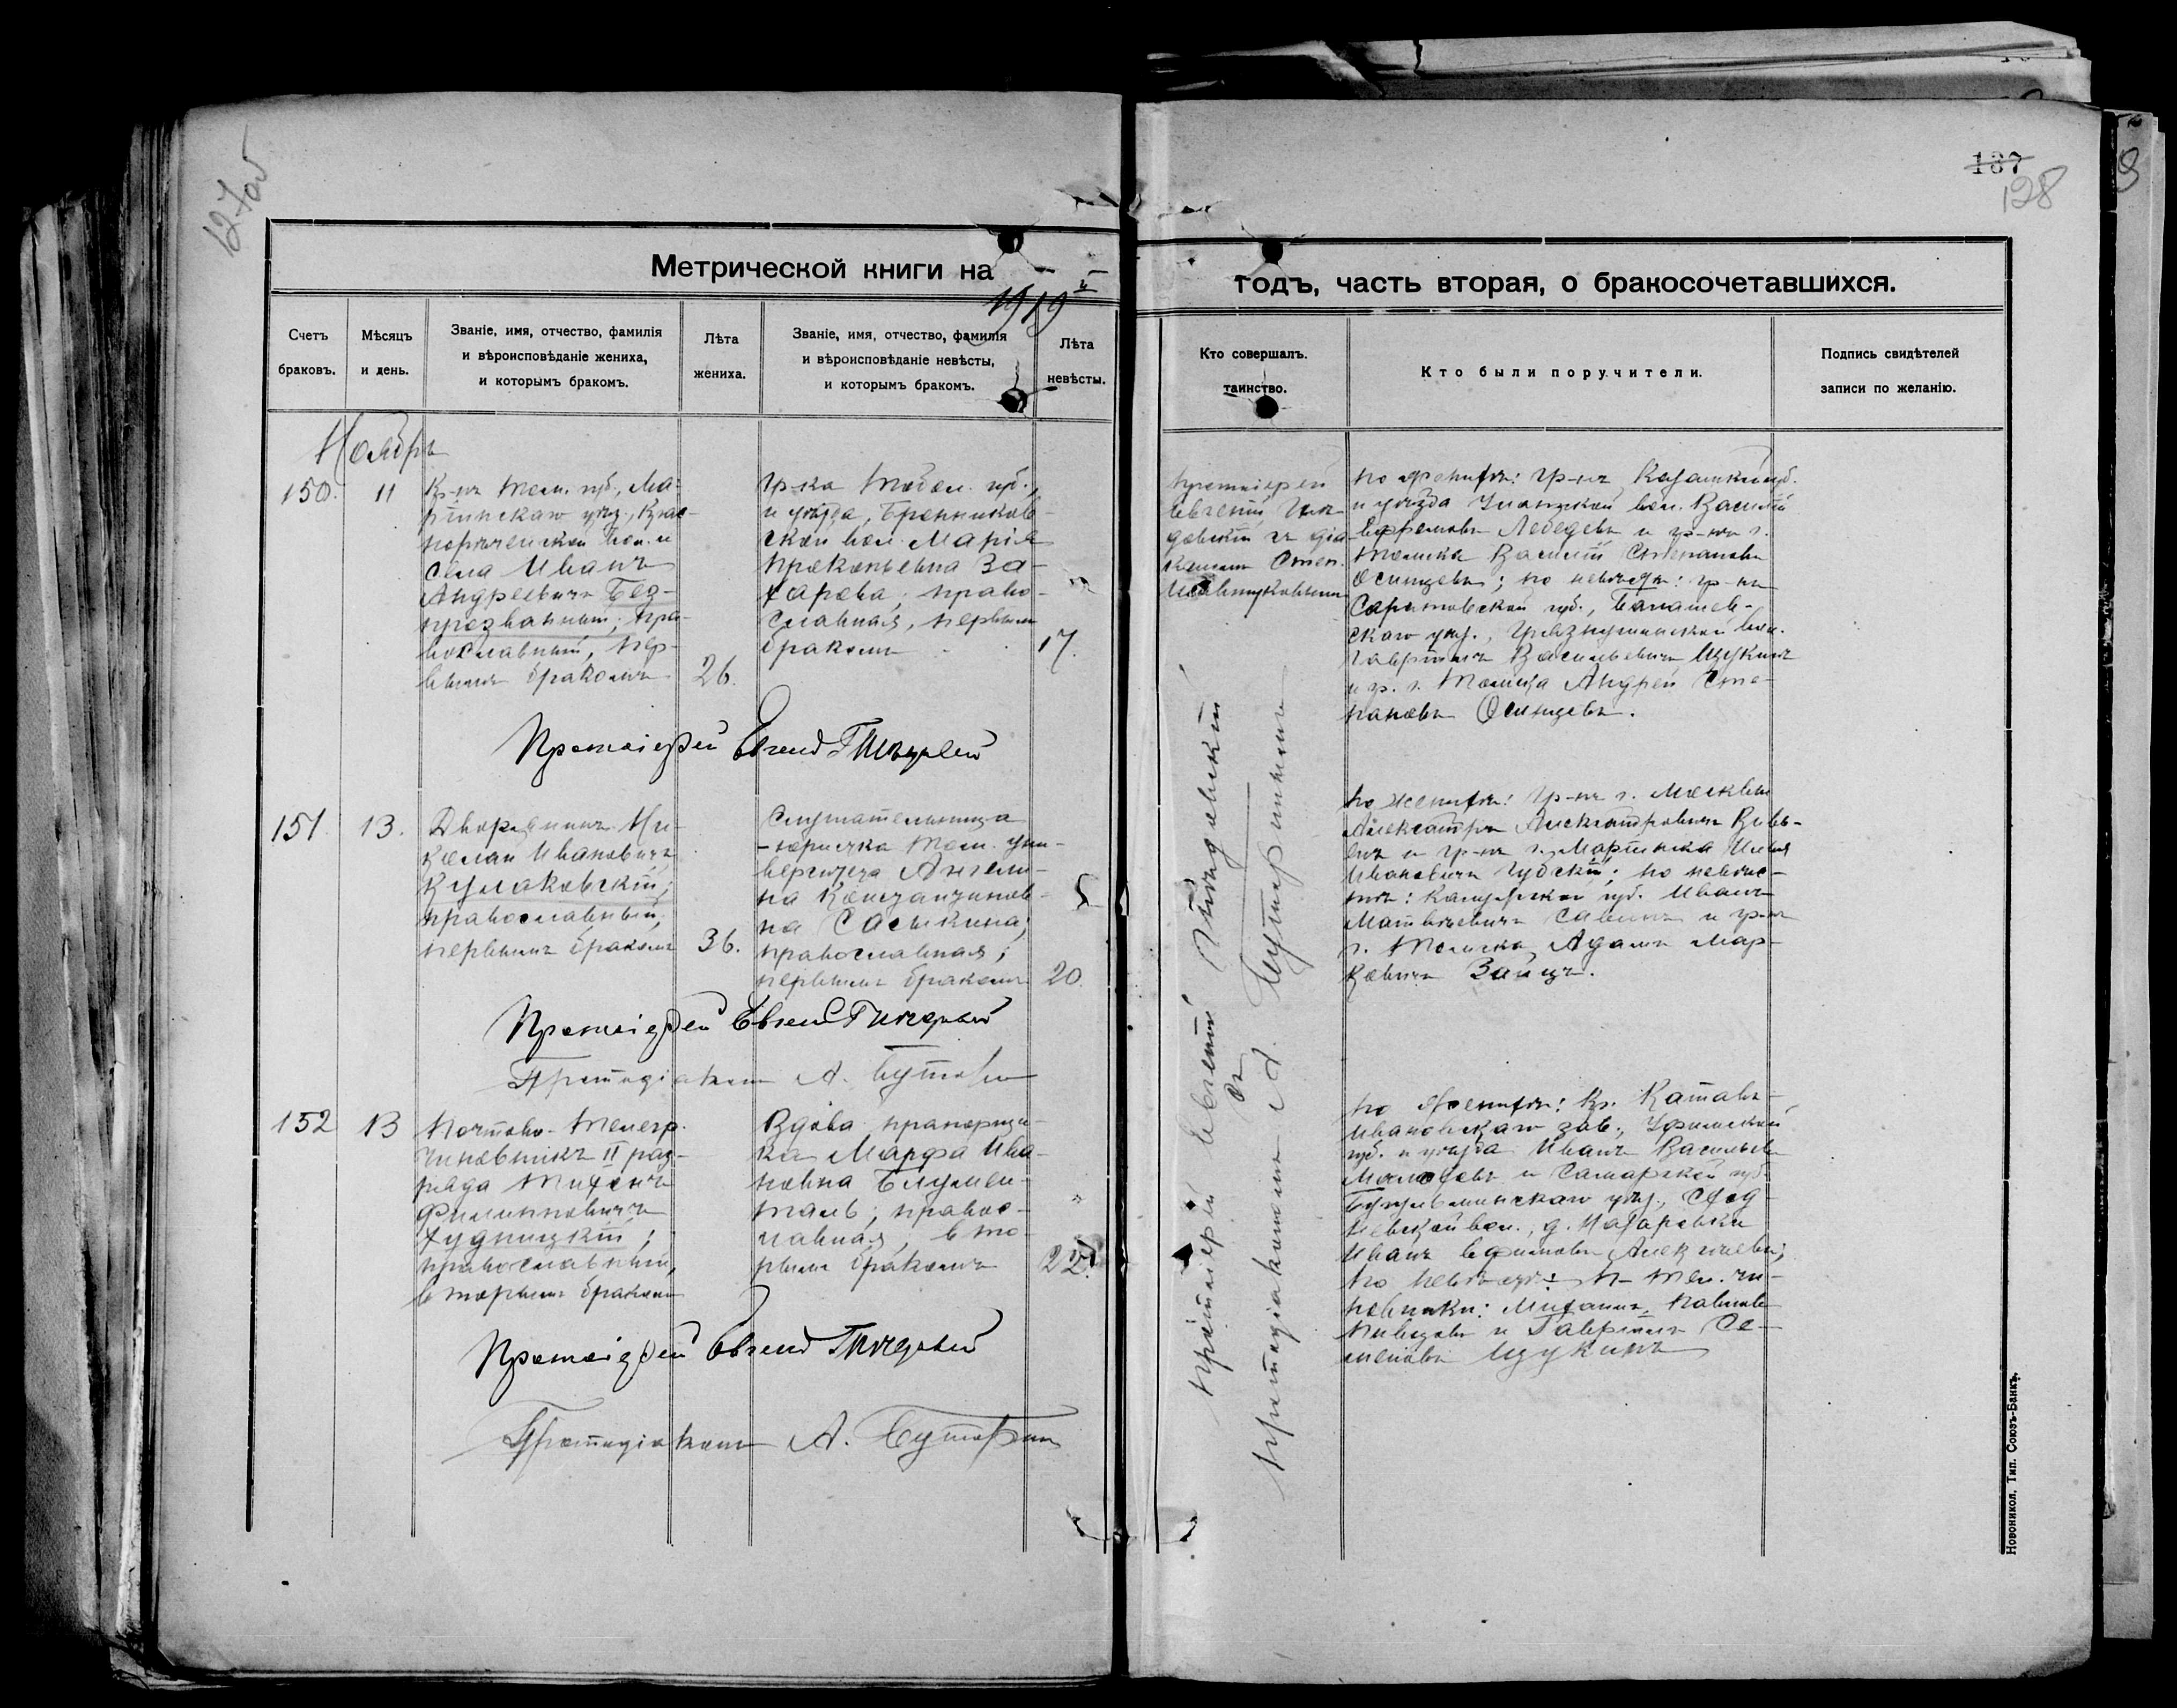 127об
137
128
Метрической книги на 1919й
годъ, часть вторая, о бракосочетавшихся.
Счетъ
браковъ.
Мѣсяцъ
и день.
Званіе, имя, отчество, фамилія
и вѣроисповѣданіе жениха,
и которымъ бракомъ.
Лѣта
жениха.
Званіе, имя, отчество, фамилія
и вѣроисповѣданіе невѣсты,
и которымъ бракомъ.
Лѣта
невѣсты.
Кто совершалъ.
таинство.
Кто были поручители.
Подпись свидѣтелей
записи по желанію.
Ноябрь
150. 11
Кр-нъ Том. губ., Ма-
ріинскаго уѣз., Крас-
норѣченской вол. и
села Иванъ
Андреевичъ Без-
прозванный; пра-
вославный, пер-
вымъ бракомъ
26.
Гр-ка Тобол. губ.,
и уѣзда, Бронников-
ской вол. Марія
Прокопьевна За-
харова; право-
славная, первымъ
бракомъ
17.
Протоіерей
Евгеній
съ діа-
кономъ Стеф.
по женихѣ: гр-нъ Казанской губ.
и уѣзда вол. Василій
Ефремовъ Лебедевъ и гр-нъ г.
Томска Василій Степановъ
Осинцевъ; по невѣстѣ: гр-нъ
Саратовской губ., Балашев-
скаго уѣз., вол.
Гавріилъ Васильевичъ Щукинъ
и гр. г. Томска Андрей Сте-
пановъ Осинцевъ.
Протоіерей Евгеній
151. 13.
Дворянинъ Ни-
колай Ивановичъ
Кулаковскій;
православный,
первымъ бракомъ
36.
Слушательница
-юристка Том. уни-
верситета Ангели-
на Константинов-
на Сасыкина;
православная;
первымъ бракомъ
20.
по женихѣ: гр-нъ г. Москвы
Александръ Александровичъ
и гр-нъ г. Маріинска Илья
Ивановичъ Губскій; по невѣс-
тѣ: Калужской губ. Иванъ
Матвѣевичъ Савинъ и гр-нъ
г. Томска Адамъ Мар-
ковичъ Заицъ.
Протоіерей Евгеній
Протодіаконъ А. Бутори
152 13
Почтово-Телегр.
чиновникъ II раз-
ряда Тихонъ
Филипповичъ
Худницкій;
православный,
вторымъ бракомъ
Вдова прапорщи-
ка Марфа Ива-
новна Блумен-
таль; правос-
лавная, вто-
рымъ бракомъ
22.
по женихѣ: кр. Катавъ-
Ивановскаго зав., Уфимской
губ. и уѣзда Иванъ Васильевъ
и Самарской губ.
Бугульминскаго уѣз.,
вол., д. Назаровки
Иванъ Ефимовъ Алексѣевъ;
по невѣстѣ: П-Тел. чи-
новники: Михаилъ Павловъ
и Гавріилъ Се-
меновъ Щукинъ
Протоіерей Евгеній
Протодіаконъ А. Буторинъ
Протоіерей Евгеній
съ
Протодіакономъ А. Буторинымъ
Новоникол. Тип. Союзъ-Банкъ.